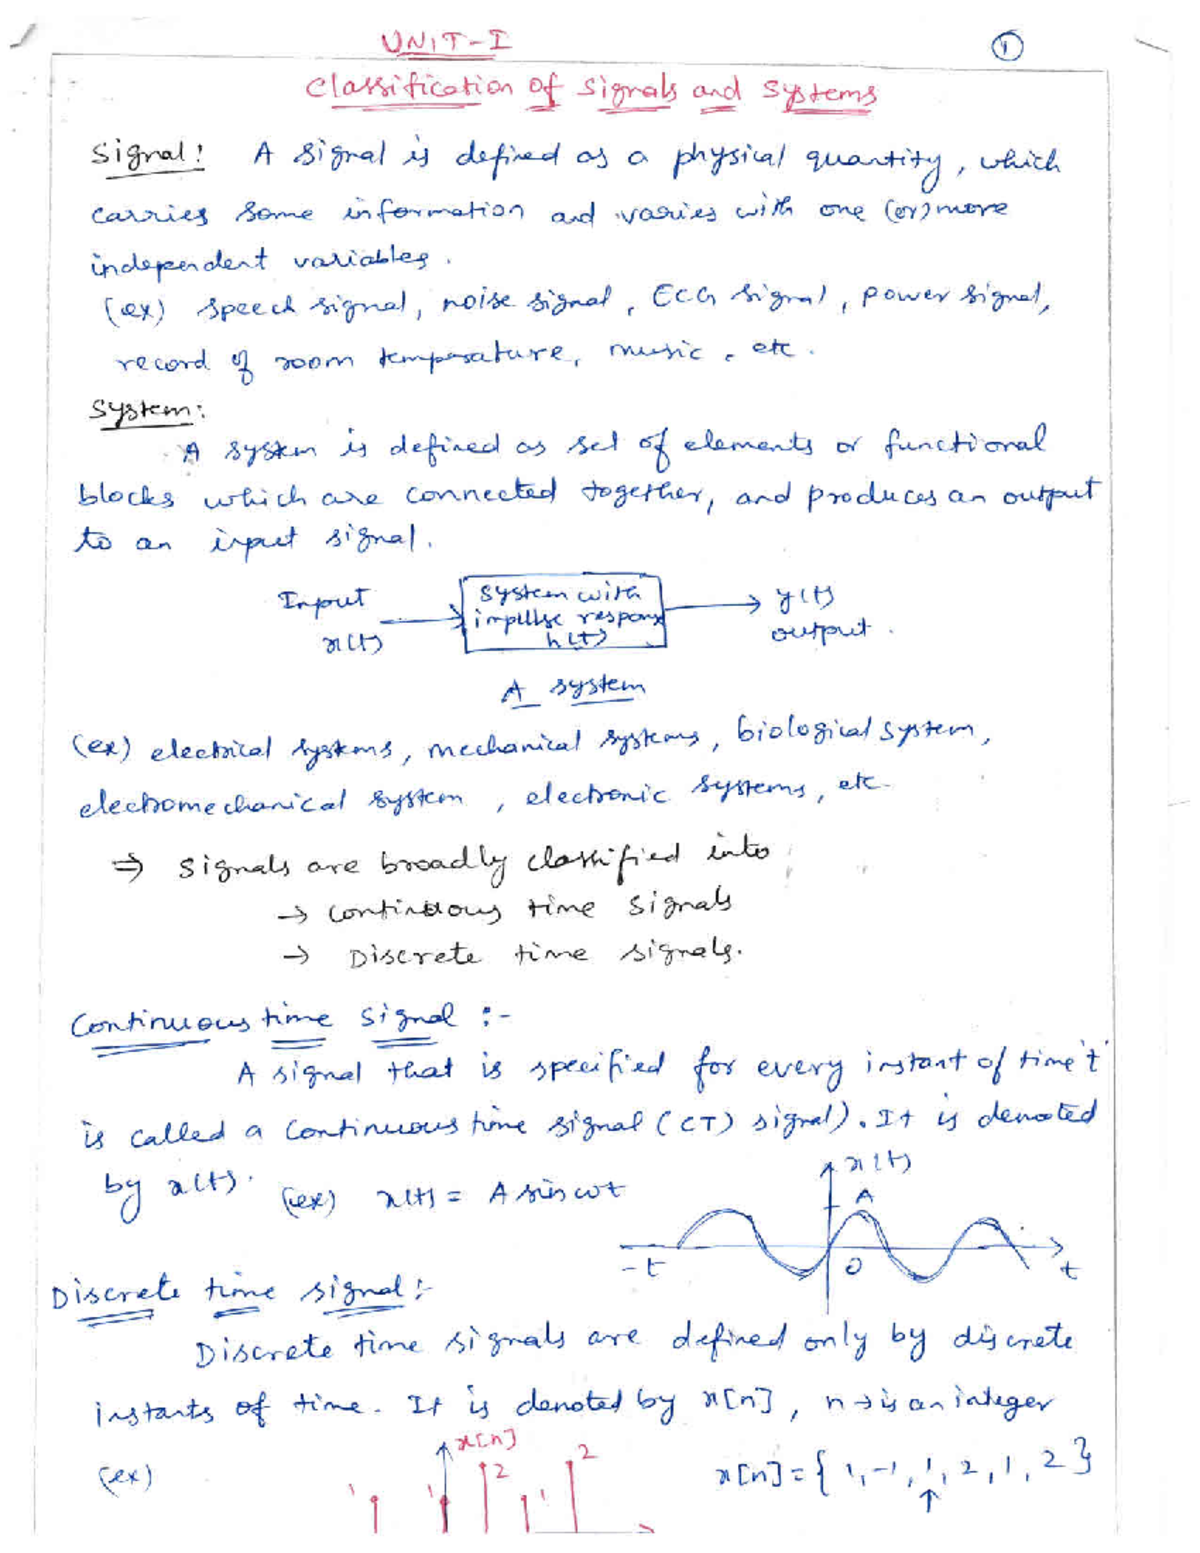 UNIT-I
1
Classification of Signals and Systems
Signal: A signal is defined as a physical quantity, which
carries some information and varies with one (or) more
independent variables.
(ex) speech signal, noise signal, ECG signal, power signal,
record of room temperature, music, etc.
System:
A system is defined as set of elements or functional
blocks which are connected together, and produces an output
to an input signal.
Input
x(t)
System with
impulse response
h(t)
y(t)
output.
A system
(ex) electrical systems, mechanical systems, biological system,
electromechanical system, electronic systems, etc.
⇒ Signals are broadly classified into
→ Continuous time signals
→ Discrete time signals.
Continuous time signal :-
A signal that is specified for every instant of time 't'
is called a continuous time signal (CT) signal). It is denoted
by x(t). (ex) x(t) = A sin ωt
x(t)
A
-t
0
t
Discrete time signal:-
Discrete time signals are defined only by discrete
instants of time. It is denoted by x[n], n → is an integer
(ex)
x[n]
1
1
2
1
2
x[n] = { 1, -1, 1, 2, 1, 2 }
↑